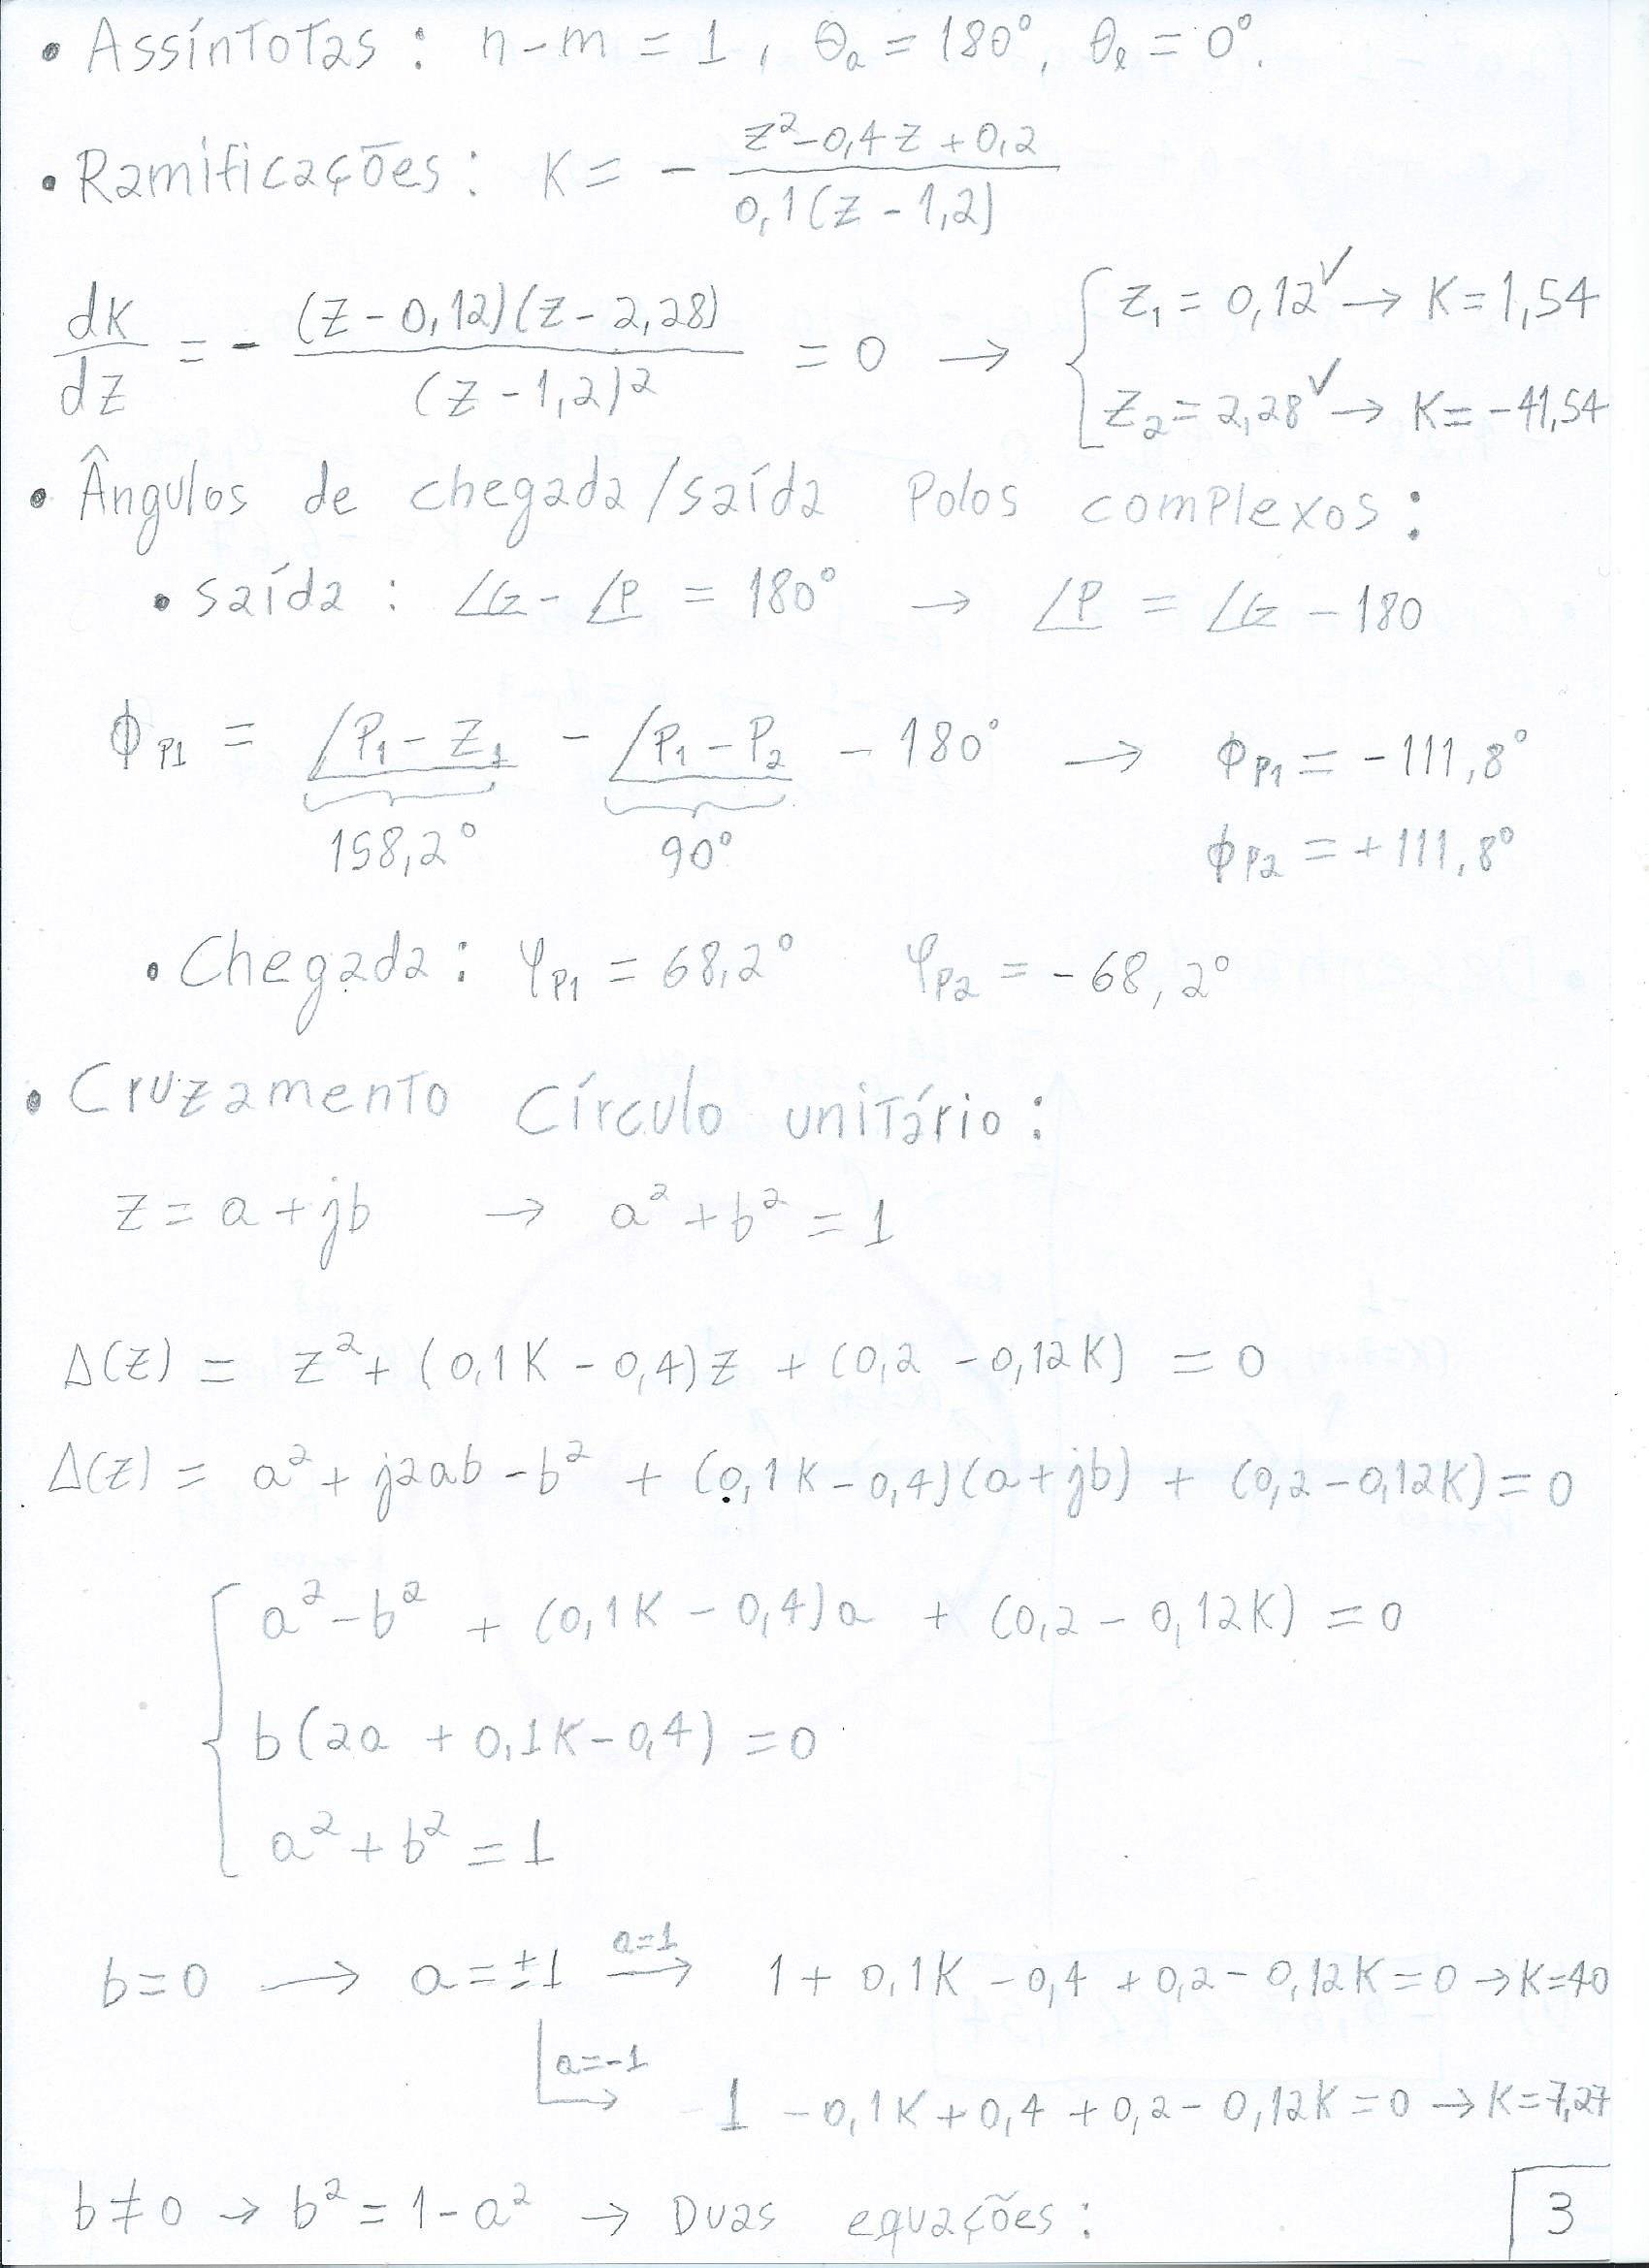 • Assíntotas: n-m = 1, θa = 180°, θl = 0°.
• Ramificações: K = - (z²-0,4z+0,2)/(0,1(z-1,2))
dK/dz = - ((z-0,12)(z-2,28))/((z-1,2)²) = 0 → { z₁ = 0,12 ✓ → K=1,54
z₂ = 2,28 ✓ → K=-41,54
• Ângulos de chegada/saída Polos complexos:
• saída: ∠G - ∠P = 180° → ∠P = ∠G - 180
ϕP1 = ∠P₁-Z₁ - ∠P₁-P₂ - 180° → ϕP1 = -111,8°
158,2° 90° ϕP2 = +111,8°
• Chegada: φP1 = 68,2° φP2 = -68,2°
• Cruzamento Círculo unitário:
z = a+jb → a²+b² = 1
Δ(z) = z² + (0,1K - 0,4)z + (0,2 - 0,12K) = 0
Δ(z) = a² + j2ab - b² + (0,1K - 0,4)(a+jb) + (0,2 - 0,12K) = 0
{ a²-b² + (0,1K - 0,4)a + (0,2 - 0,12K) = 0
b(2a + 0,1K - 0,4) = 0
a²+b² = 1
b=0 → a=±1 a=1 → 1 + 0,1K - 0,4 + 0,2 - 0,12K = 0 → K=40
a=-1 → 1 - 0,1K + 0,4 + 0,2 - 0,12K = 0 → K=7,27
b≠0 → b² = 1-a² → Duas equações:
3